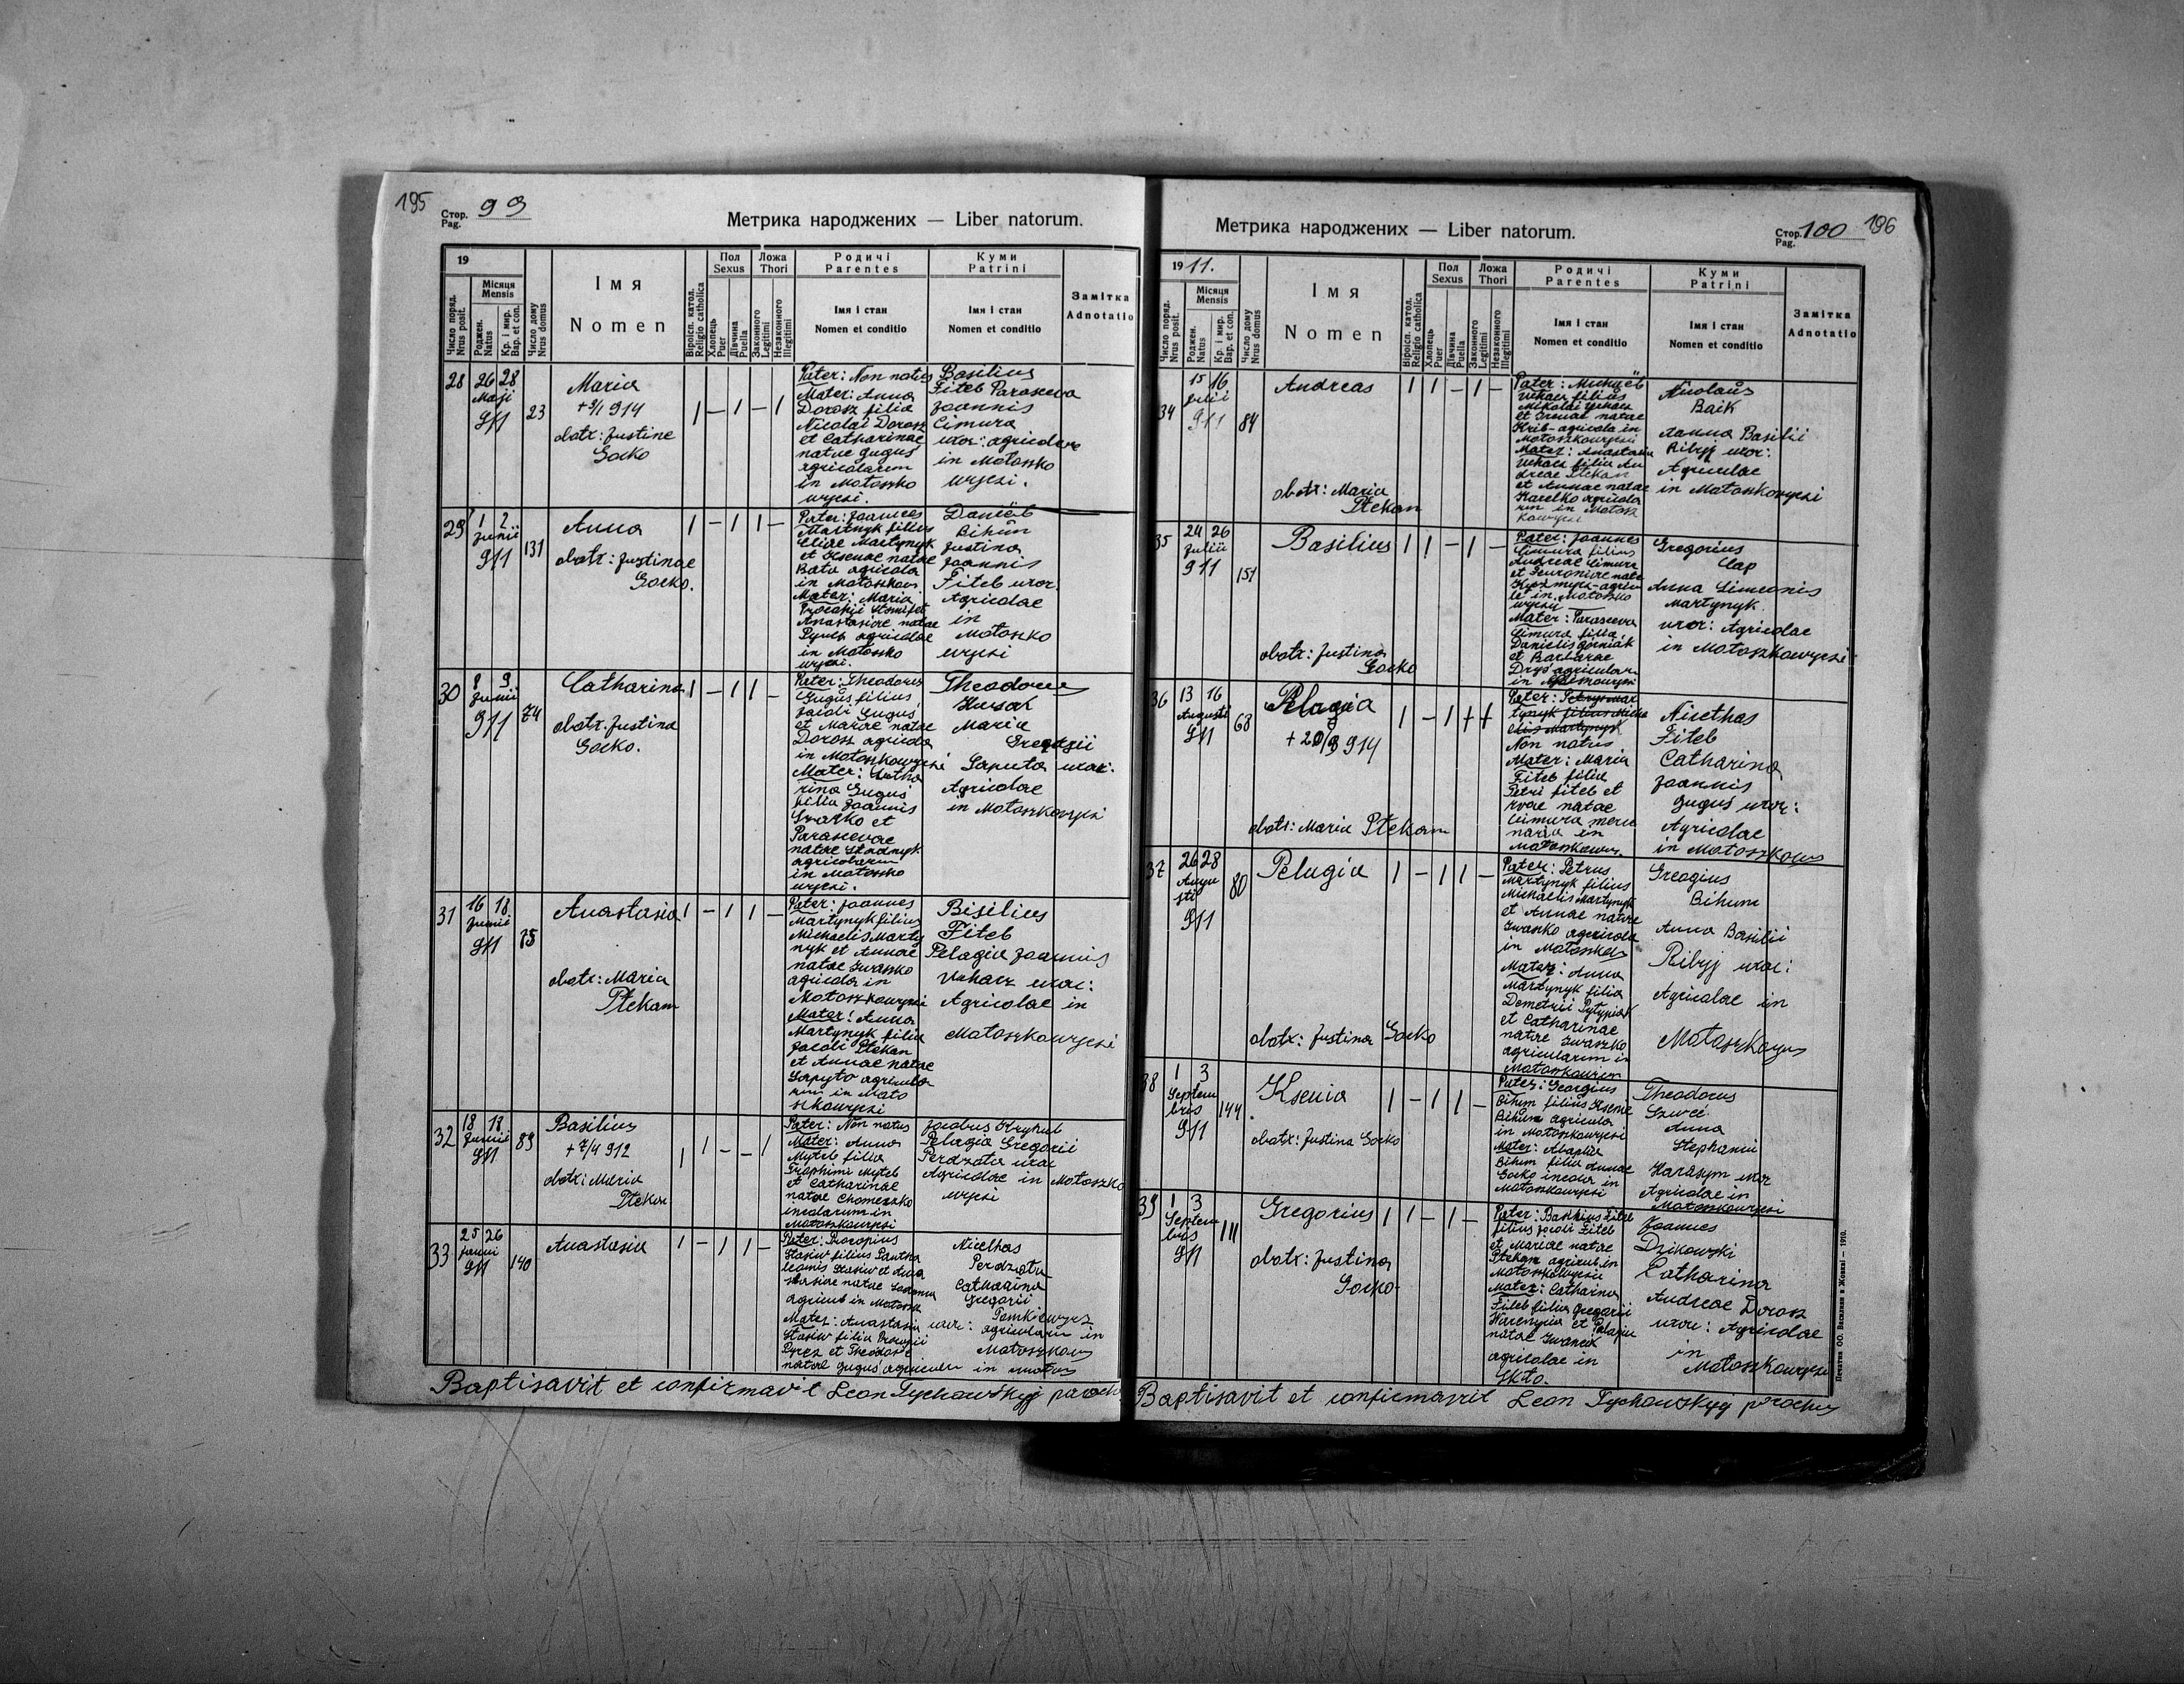 195
Стор. 99
Pag.
Метрика народжених — Liber natorum.
19
Число поряд.
Nrus posit.
Місяця
Mensis
Роджен.
Natus
Кр. і мир.
Bap. et con.
Число дому
Nrus domus
Імя
Nomen
Віроісп. катол.
Religio catholica
Пол
Sexus
Хлопець
Puer
Дівчина
Puella
Ложа
Thori
Законного
Legitimi
Незаконного
Illegitimi
Родичі
Parentes
Імя і стан
Nomen et conditio
Куми
Patrini
Імя і стан
Nomen et conditio
Замітка
Adnotatio
28
26 28
Maji
911
23
Maria
+ 9/1 914
obstr: Justine
Gocko
1 — 1 — 1
Pater: Non natus
Mater: Anna
Dorosz filia
Nicolai Dorosz
et Catharinae
natae Guguś
agricolarum
in Motoszko
wyesi.
Basilius
Fiteb Parasceva
Joannis
Cimura
uxor: agricolae
in Motoszko
wyesi.
29
1 2
Junii
911
131
Anna
obstr: Justinae
Gocko.
1 — 1 1 —
Pater: Joannes
Martynyk filius
Eliae Martynyk
et Kseniae natae
Bata agricola
in Motoszkow
Mater: Maria
Anastasiae natae
agricolae
in Motoszko
wyesi.
Daniël
Bihun
Justina
Joannis
Fiteb uxor.
Agricolae
in
Motoszko
wyesi
30
8 9
Junii
911
74
Catharina
obstr. Justina
Gocko.
1 — 1 1 —
Pater: Theodorus
Guguś filius
Jacobi Guguś
et Mariae natae
Dorosz agricola
in Motoszkowyesi
Mater: Catha
rina Guguś
filia Joannis
Iwasko et
Parascevae
natae Stadnyk
agricolarum
in Motoszko
wyesi.
Theodorus
Husar
Maria
Gregorii
Saputa uxor.
Agricolae
in Motoszkowyesi
31
16 18
Junii
911
75
Anastasia
obstr: Maria
Ptekan
1 — 1 1 —
Pater: Joannes
Martynyk filius
Michaelis Marty
nyk et Annae
natae Iwasko
agricola in
Motoszkowyesi
Mater: Anna
Martynyk filia
Jacobi Ptekan
et Annae natae
Saputo agricola
rum in Moto
szkowyesi
Bisilius
Fiteb
Pelagia Joannis
Uchacz uxor:
Agricolae in
Motoszkowyesi
32
18 18
Junii
911
89
Basilius
+ 7/4 912
obstr: Maria
Ptekan
1 1 — — 1
Pater: Non natus
Mater: Anna
Myteb filia
Trophimi Myteb
et Catharinae
natae Chomeszko
incolarum in
Motoszkowyesi
Jacobus Hryhub
Pelagia Gregorii
Perdzota uxor
Agricolae in Motoszko
wyesi
33
25 26
Junii
911
140
Anastasia
1 — 1 1 —
Pater: Procopius
Stasiw filius Pantha
leonis Stasiw et Ana
stasiae natae
agricola in Motoszk
Mater: Anastasia
Stasiw filia Procopii
Pyrcz et Theodosi
natae Guguś agricolarum in Motos
Nicethas
Perdzota
Catharina
Gregorii
Pomkiewycz
uxor: agricolarum in
Motoszkow
Baptisavit et confirmavit Leon Tychowśkyj paroch
Метрика народжених — Liber natorum.
Стор. 100
Pag.
196
1911.
Число поряд.
Nrus posit.
Місяця
Mensis
Роджен.
Natus
Кр. і мир.
Bap. et con.
Число дому
Nrus domus
Імя
Nomen
Віроісп. катол.
Religio catholica
Пол
Sexus
Хлопець
Puer
Дівчина
Puella
Ложа
Thori
Законного
Legitimi
Незаконного
Illegitimi
Родичі
Parentes
Імя і стан
Nomen et conditio
Куми
Patrini
Імя і стан
Nomen et conditio
Замітка
Adnotatio
34
15 16
Julii
911
84
Andreas
obstr: Maria
Ptekan
1 1 — 1 —
Pater: Michaël
Uchacz filius
Mikolai Uchacz
et natae
Hrib - agricola in
Motoszkowyesi
Mater: Anastasia
Uchacz filia An
dreae Ptekan
et Annae natae
Harelko agricola
rum in Motosz
kowyesi
Nicolaus
Baik
Anna Basilii
Ribyj uxor:
Agricolae
in Motoszkowyesi
35
24 26
Julii
911
151
Basilius
obstr: Justina
Gocko
1 1 — 1 —
Pater: Joannes
Cimura filius
Andreae Cimura
et natae
in Motoszko
wyesi —
Mater: Parasceva
Cimura filia
Danielis Górniak
et Barbarae
Dryś agricolar
in Motoszkowyesi
Gregorius
Cap
Anna Simeonis
Martynyk.
uxor: Agricolae
in Motoszkowyesi
36
13 16
Augusti
911
68
Pelagia
+ 20/9 914
obstr: Maria Ptekam
1 — 1
Pater: Petrys Mar
tynyk filius Micha
elis Martynyk
Non natus
Mater: Maria
Fiteb filia
Petri Fiteb et
natae
Cimura merce
naria in
Motoszkowy.
Nicethas
Fiteb
Catharina
Joannis
Guguś uxor:
Agricolae
in Motoszkows
37
26 28
Augu
sti
911
80
Pelagia
obstr: Justina Gocko
1 — 1 1 —
Pater: Petrus
Martynyk filius
Michaelis Martynyk
et Annae natae
Iwasko agricola
in Motoszkows
Mater: Anna
Martynyk filia
Demetrii Pytypiak
et Catharinae
natae Iwaszko
agricolarum in
Motoszkowien
Greogius
Bihum
Anna Basilii
Ribyj uxor:
Agricolae in
Motoszkowys
38
1 3
Septem
bris
911
144
Ksenia
obstr: Justina Gocko
1 — 1 1 —
Pater: Georgius
Bihim filius Kseniae
Bihum agricola
in Motoszkowyesi
Mater: Agaphia
Bihim filia Annae
Gocko incola in
Motoszkowyesi
Theodorus
Szwei
Anna
Stephanii
Harasym uxor
Agricolae in
Motoszkowyesi
39
1 3
Septem
bris
911
111
Gregorius
obstr: Justina
Gocko
1 1 — 1 —
Pater: Basilius Fiteb
filius Jacobi Fiteb
et Mariae natae
Ptekam agricola in
Motoszkowyesi
Mater: Catharina
Fiteb filia Gregorii
et Pelagiae
natae Iwanek
agricolae in
Skto.
Joannes
Dzikowski
Catharina
Andreae Dorosz
uxor: Agricolae
in
Motoszkowyesi
Baptisavit et confirmavit Leon Tychowśkyj parochus
Печатня ОО. Василиян в Жовкві — 1910.